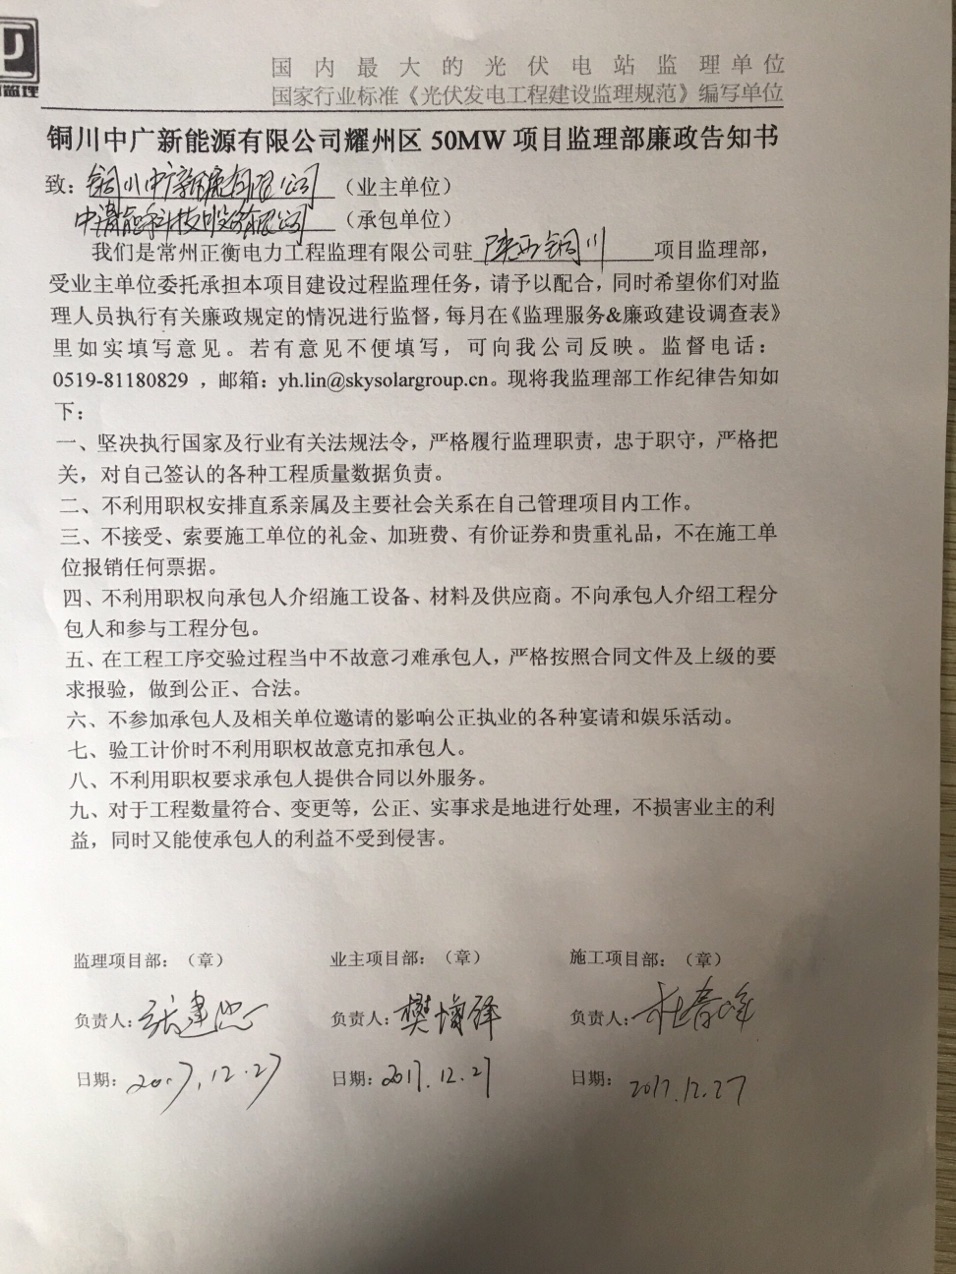 监理
国内最大的光伏电站监理单位
国家行业标准《光伏发电工程建设监理规范》编写单位
铜川中广新能源有限公司耀州区 50MW 项目监理部廉政告知书
致：铜川中广新能源有限公司（业主单位）
科技股份有限公司（承包单位）
我们是常州正衡电力工程监理有限公司驻 陕西铜川 项目监理部，
受业主单位委托承担本项目建设过程监理任务，请予以配合，同时希望你们对监
理人员执行有关廉政规定的情况进行监督，每月在《监理服务&廉政建设调查表》
里如实填写意见。若有意见不便填写，可向我公司反映。监督电话：
0519-81180829 ，邮箱：yh.lin@skysolargroup.cn。现将我监理部工作纪律告知如
下：
一、坚决执行国家及行业有关法规法令，严格履行监理职责，忠于职守，严格把
关，对自己签认的各种工程质量数据负责。
二、不利用职权安排直系亲属及主要社会关系在自己管理项目内工作。
三、不接受、索要施工单位的礼金、加班费、有价证券和贵重礼品，不在施工单
位报销任何票据。
四、不利用职权向承包人介绍施工设备、材料及供应商。不向承包人介绍工程分
包人和参与工程分包。
五、在工程工序交验过程当中不故意刁难承包人，严格按照合同文件及上级的要
求报验，做到公正、合法。
六、不参加承包人及相关单位邀请的影响公正执业的各种宴请和娱乐活动。
七、验工计价时不利用职权故意克扣承包人。
八、不利用职权要求承包人提供合同以外服务。
九、对于工程数量符合、变更等，公正、实事求是地进行处理，不损害业主的利
益，同时又能使承包人的利益不受到侵害。
监理项目部：（章） 业主项目部：（章） 施工项目部：（章）
负责人：张建忠 负责人：樊 锋 负责人：杜春峰
日期：2017.12.27 日期：2017.12.27 日期：2017.12.27